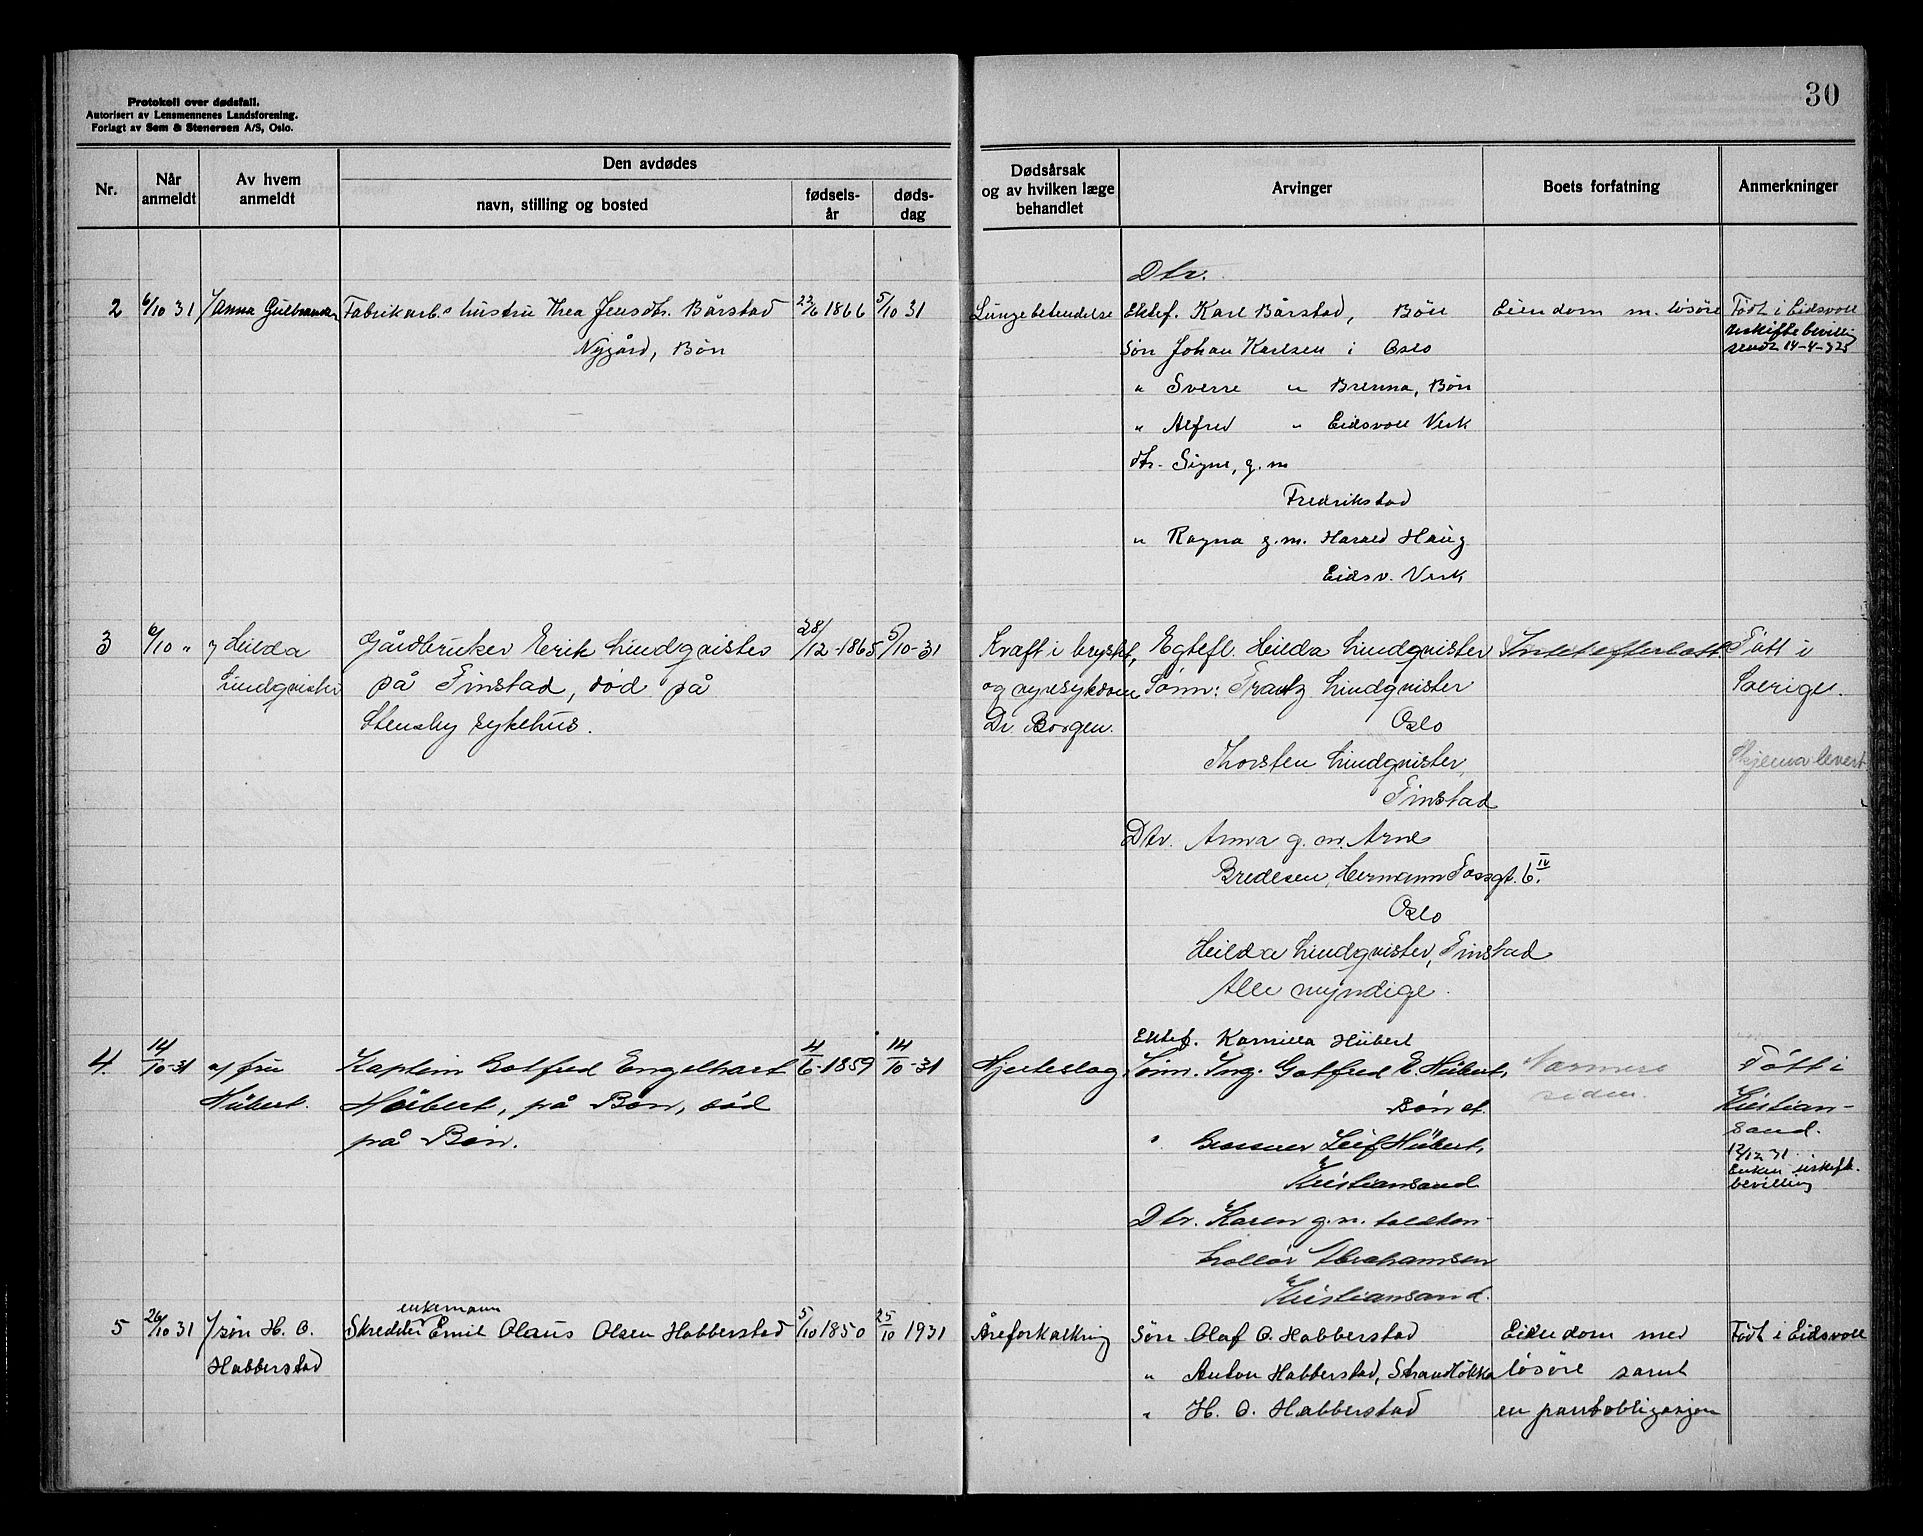 Protokoll over dødsfall.
Autorisert av Lensmennenes Landsforening.
Forlagt av Sem & Stenersen A/S, Oslo.
30
Nr.
Når anmeldt
Av hvem anmeldt
Den avdødes
navn, stilling og bosted
fødsels-år
døds-dag
Dødsårsak og av hvilken læge behandlet
Arvinger
Boets forfatning
Anmerkninger
2 6/10 31 v/ Anna Gulbrandsen Fabrikarb.s hustru Thea Jensdtr. Bårstad 22/6 1866 5/10 31
Nygård, Bøn
Lungebetendelse
Dtr.
Ektef. Karl Bårstad, Bøn
Søn Johan Karlsen i Oslo
" Sverre " Brenna, Bøn
" Alfred " Eidsvoll Verk
dtr. Signe, g.m
Fredrikstad
" Ragna g.m. Harald Haug
Eidsv. Verk
Eiendom m. løsøre
Født i Eidsvoll
uskiftebevilli
sendt 14-4-32
3 6/10 " v/ Hilda Lindqvister
Gårdbruker Erik Lindqvister
på Finstad, død på
Stensby sykehus.
28/12-1865 5/10-31
Kraft i brystet,
og nyresykdom
Dr. Borgen.
Egtefl. Hilda Lindqvister
Sønn: Frantz Lindqvister
Oslo
Thorsten Lindqvister,
Finstad
Dtr. Anna g. m. Arne
Bredesen, Hermann Fossgt. 6. IV
Oslo
Hilda Lindqvister, Finstad
Alle myndige.
Intet efterlatt
Føtt i
Sverige.
Skjema levert
4. 14/10-31 v/ fru Hübert.
Kaptein Gotfred Engelhart
Hübert, på Bøn, død
på Bøn.
4/6-1859 14/10-31
Hjerteslag
Ektef. Kamilla Hübert
Sønn. Ing. Gotfred E. Hübert,
Bøn st.
" Leif Hübert,
Kristiansand
Dtr. Karen g.m. toldkon-
trollør Abrahamsen
Kristiansand.
Nærmere
siden.
Føtt i
Kristian-
sand.
12/12 31
Enken uskift.
bevilling
5 26/10 31 v/ søn H. O. Habberstad
enkemann
Skredder Emil Olaus Olsen Habberstad 5/10 1850 25/10 1931
Åreforkalkning
Søn Olaf O. Habberstad
" Anton Habberstad, Strandløkka
" H. O. Habberstad
Eiendom med
løsøre samt
en pantobligasjon
Født i Eidsvoll